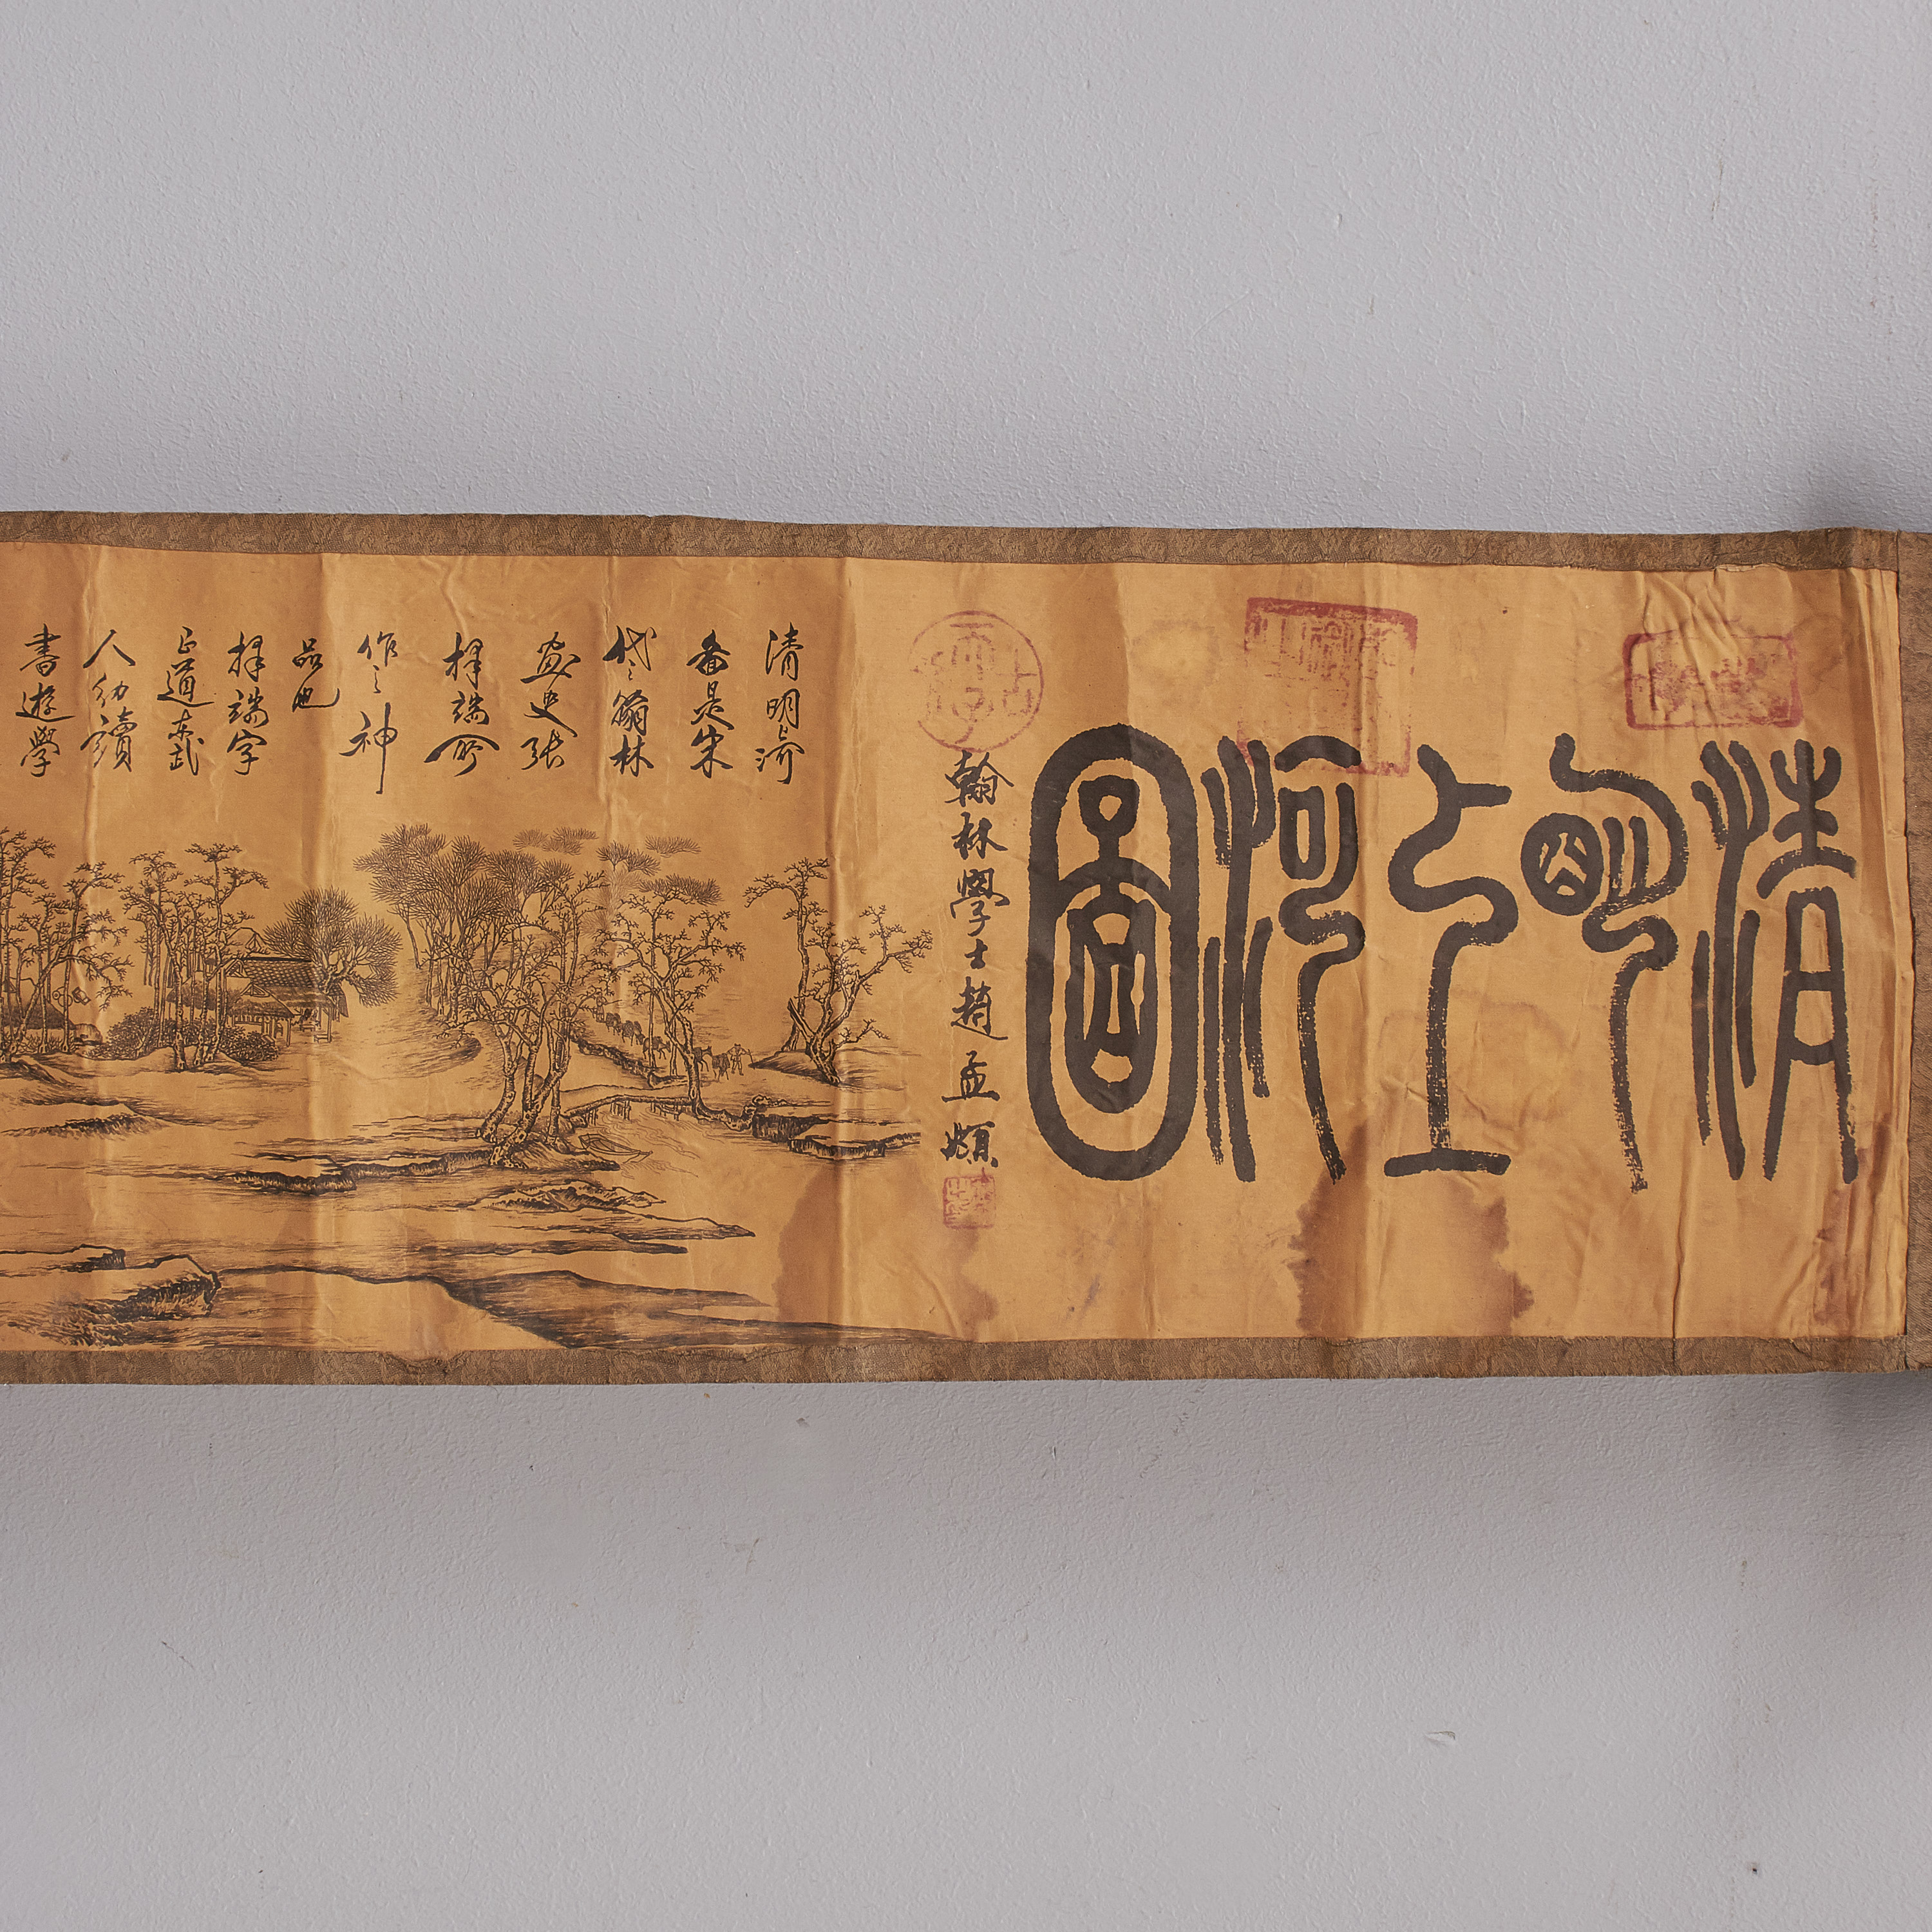 清明上河圖
翰林學士趙孟頫
清明上河
畨是宋
代之翰林
畫史张
擇端所
作之神
品也
擇端字
正道东武
人幼讀
書遊學